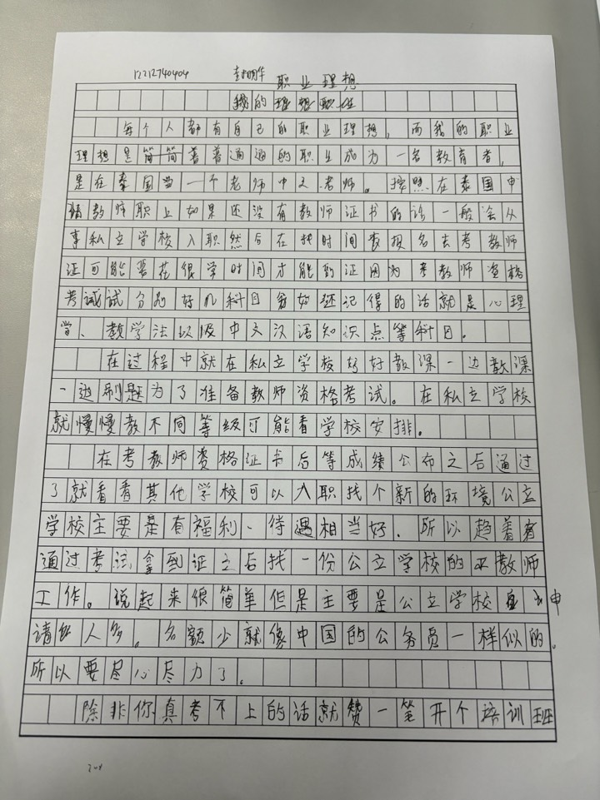 1212740404 职业理想
我的理想职业
每个人都有自己的职业理想，而我的职业
理想是简简普普通通的职业成为一名教育者，
是在泰国当一个老师中文老师。按照在泰国申
请教师职上如果还没有教师证书的话一般会从
事私立学校入职然后在找时间查报名去考教师
证可能要花很学时间才能的证因为考教师资格
考试试分为好几科目务如还记得的话就是心理
学、教学法以及中文汉语知识点等科目。
在过程中就在私立学校好好教课一边教课
一边刷题为了准备教师资格考试。在私立学校
就慢慢教不同等级可能看学校安排。
在考教师资格证书后等成绩公布之后通过
了就看看其他学校可以入职找个新的环境公立
学校主要是有福利、待遇相当好．所以趁着考
通过考试拿到证之后找一份公立学校的教师
工作。说起来很简单但是主要是公立学校申
请人多。名额少就像中国的公务员一样似的。
所以要尽心尽力了。
除非你真考不上的话就攒一笔开个培训班